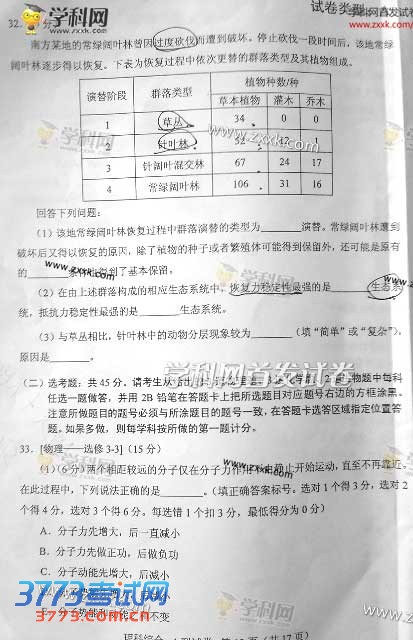 学科网
WWW.ZXXK.COM
试卷类型
学科网首发试卷
www.zxxk.com
32.
分
南方某地的常绿阔叶林曾因过度砍伐而遭到破坏。停止砍伐一段时间后，该地常绿
阔叶林逐步得以恢复。下表为恢复过程中依次更替的群落类型及其植物组成。
演替阶段 群落类型 植物种数/种
草本植物 灌木 乔木
1 草丛 34 0 0
2 针叶林 52 12 1
3 针阔叶混交林 67 24 17
4 常绿阔叶林 106 31 16
回答下列问题：
（1）该地常绿阔叶林恢复过程中群落演替的类型为______演替。常绿阔叶林遭到
破坏后又得以恢复的原因，除了植物的种子或者繁殖体可能得到保留外，还可能是原有
的______条件也得到了基本保留。
（2）在由上述群落构成的相应生态系统中，恢复力稳定性最强的是______生态系
统，抵抗力稳定性最强的是______生态系统。
（3）与草丛相比，针叶林中的动物分层现象较为______（填“简单”或“复杂”），
原因是______。
学科网首发试卷
（二）选考题：共 45 分。请考生从
物题中每科
任选一题做答，并用 2B 铅笔在答题卡上把所选题目对应题号右边的方框涂黑。
注意所做题目的题号必须与所涂题目的题号一致，在答题卡选答区域指定位置答
题。如果多做，则每学科按所做的第一题计分。
33. [物理——选修 3-3]（15 分）
（1）（6 分）两个相距较远的分子仅在分子力作用下由静止开始运动，直至不再靠近。
在此过程中，下列说法正确的是______。（填正确答案标号。选对 1 个得 3 分，选对 2
个得 4 分，选对 3 个得 6 分。每选错 1 个扣 3 分，最低得分为 0 分）
A．分子力先增大，后一直减小
B．分子力先做正功，后做负功
C．分子动能先增大，后减小
3773考试网
www.3773.com.cn
不变
理科综合